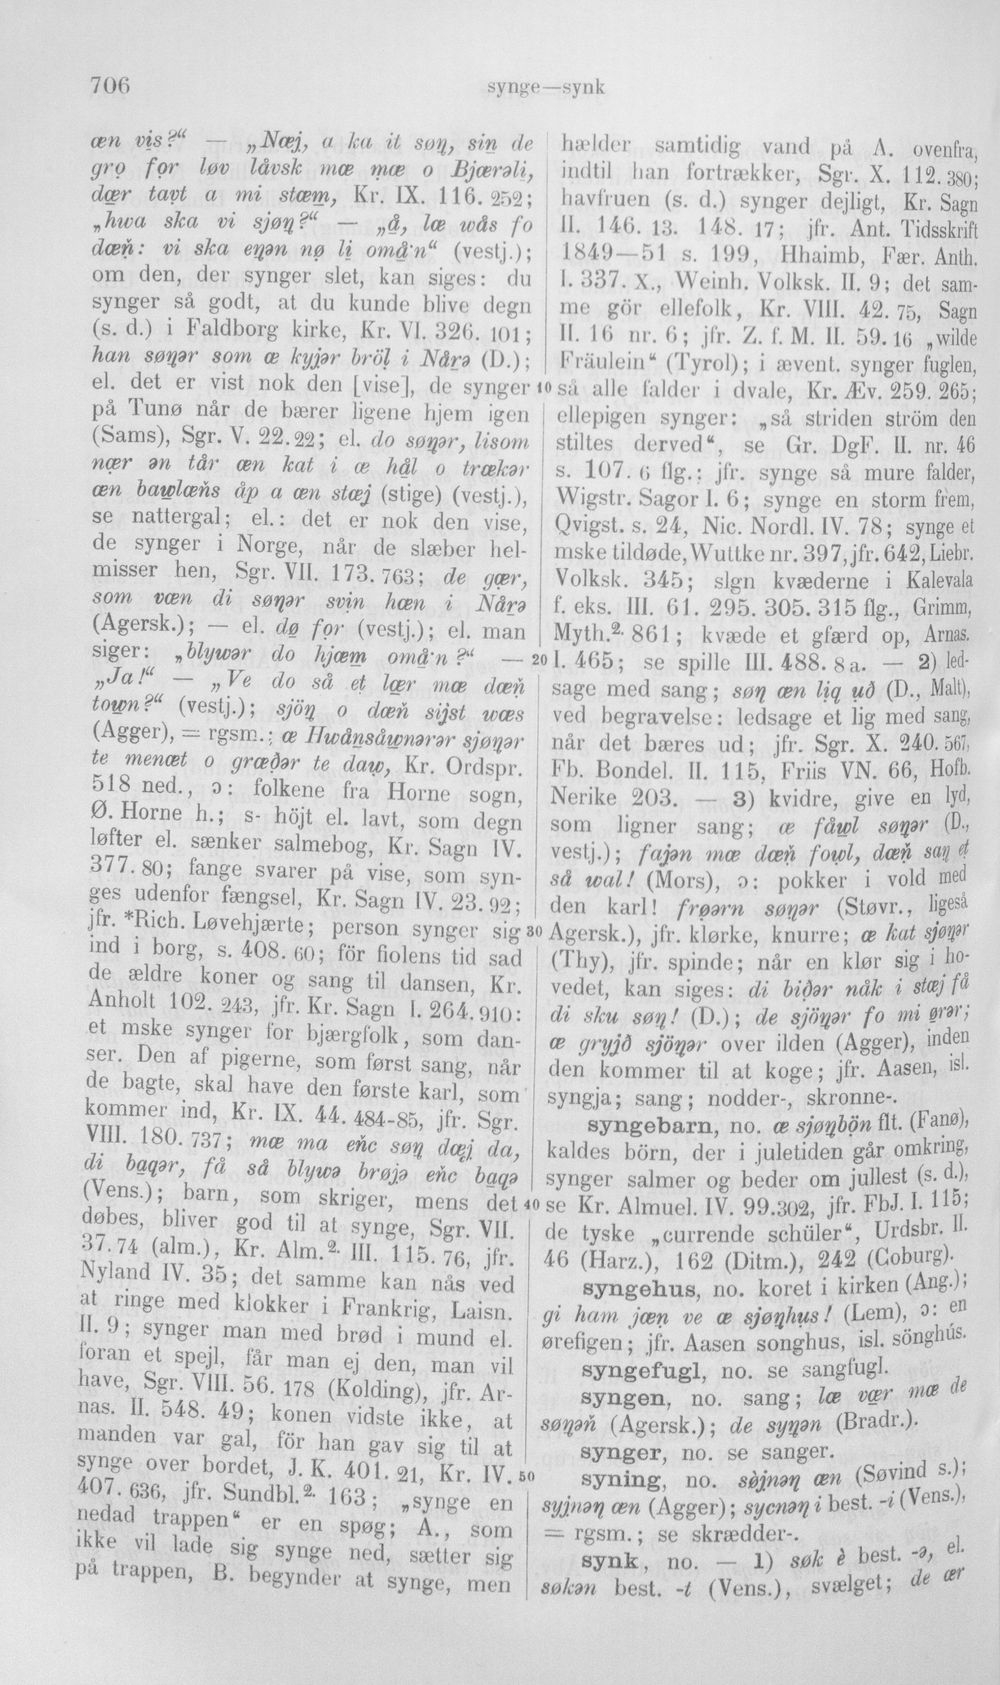 706
synge—synk
æn vis?“ — „Næj, a ka it søŋ, sin de
gro for løv låvsk mæ mæ o Bjærəli,
dær tavt a mi stæm, Kr. IX. 116. 252;
„hwa ska vi sjøŋ?“ — „å, læ wås fo
dæń: vi ska eŋən nø li omå·n“ (vestj.);
om den, der synger slet, kan siges: du
synger så godt, at du kunde blive degn
(s. d.) i Faldborg kirke, Kr. VI. 326. 101;
han søŋər som æ kyjər bröl i Nårə (D.);
el. det er vist nok den [vise], de synger
på Tunø når de bærer ligene hjem igen
(Sams), Sgr. V. 22. 22; el. do søŋər, lisom
nær ən tår æn kat i æ hål o trækər
æn bawlæńs åp a æn stæj (stige) (vestj.),
se nattergal; el.: det er nok den vise,
de synger i Norge, når de slæber hel-
misser hen, Sgr. VII. 173. 763; de gær,
som væn di søŋər svin hæn i Nårə
(Agersk.); — el. dø for (vestj.); el. man
siger: „blywər do hjæm omå·n?“ —
„Ja!“ — „Ve do så et lær mæ dæń
town?“ (vestj.); sjöŋ o dæń sijst wæs
(Agger), = rgsm.; æ Hwånsåwnərər sjøŋər
te menæt o græðər te daw, Kr. Ordspr.
518 ned., ɔ: folkene fra Horne sogn,
Ø. Horne h.; s- höjt el. lavt, som degn
løfter el. sænker salmebog, Kr. Sagn IV.
377. 80; fange svarer på vise, som syn-
ges udenfor fængsel, Kr. Sagn IV. 23. 92;
jfr. *Rich. Løvehjærte; person synger sig
ind i borg, s. 408. 60; för fiolens tid sad
de ældre koner og sang til dansen, Kr.
Anholt 102. 243, jfr. Kr. Sagn I. 264. 910:
et mske synger for bjærgfolk, som dan-
ser. Den af pigerne, som først sang, når
de bagte, skal have den første karl, som
kommer ind, Kr. IX. 44. 484-85, jfr. Sgr.
VIII. 180. 737; mæ ma eńc søŋ dæj da,
di baqər, få så blywə brøjə eńc baqə
(Vens.); barn, som skriger, mens det
døbes, bliver god til at synge, Sgr. VII.
37. 74 (alm.), Kr. Alm.2. III. 115. 76, jfr.
Nyland IV. 35; det samme kan nås ved
at ringe med klokker i Frankrig, Laisn.
II. 9; synger man med brød i mund el.
foran et spejl, får man ej den, man vil
have, Sgr. VIII. 56. 178 (Kolding), jfr. Ar-
nas. II. 548. 49; konen vidste ikke, at
manden var gal, för han gav sig til at
synge over bordet, J. K. 401. 21, Kr. IV.
407. 636, jfr. Sundbl.2. 163; „synge en
nedad trappen“ er en spøg; A., som
ikke vil lade sig synge ned, sætter sig
på trappen, B. begynder at synge, men
hælder samtidig vand på A. ovenfra,
indtil han fortrækker, Sgr. X. 112. 380;
havfruen (s. d.) synger dejligt, Kr. Sagn
II. 146. 13. 148. 17; jfr. Ant. Tidsskrift
1849—51 s. 199, Hhaimb, Fær. Anth.
I. 337. X., Weinh. Volksk. II. 9; det sam-
me gör ellefolk, Kr. VIII. 42. 75, Sagn
II. 16 nr. 6; jfr. Z. f. M. II. 59. 16 „wilde
Fräulein“ (Tyrol); i ævent. synger fuglen,
10 så alle falder i dvale, Kr. Æv. 259. 265;
ellepigen synger: „så striden ström den
stiltes derved“, se Gr. DgF. II. nr. 46
s. 107. 6 flg.; jfr. synge så mure falder,
Wigstr. Sagor I. 6; synge en storm frem,
Qvigst. s. 24, Nic. Nordl. IV. 78; synge et
mske tildøde, Wuttke nr. 397, jfr. 642, Liebr.
Volksk. 345; slgn kvæderne i Kalevala
f. eks. III. 61. 295. 305. 315 flg., Grimm,
Myth.2. 861; kvæde et gfærd op, Arnas.
20 I. 465; se spille III. 488. 8 a. — 2) led-
sage med sang; søŋ æn liq uð (D., Malt),
ved begravelse: ledsage et lig med sang,
når det bæres ud; jfr. Sgr. X. 240. 567,
Fb. Bondel. II. 115, Friis VN. 66, Hofb.
Nerike 203. — 3) kvidre, give en lyd,
som ligner sang; æ fåwl søŋər (D.,
vestj.); fajən mæ dæń fowl, dæń saŋ et
så wal! (Mors), ɔ: pokker i vold med
den karl! frøərn søŋər (Støvr., ligeså
30 Agersk.), jfr. klørke, knurre; æ kat sjøŋər
(Thy), jfr. spinde; når en klør sig i ho-
vedet, kan siges: di biðər nåk i stæj få
di sku søŋ! (D.); de sjöŋər fo mi ørər;
æ gryjð sjöŋər over ilden (Agger), inden
den kommer til at koge; jfr. Aasen, isl.
syngja; sang; nodder-, skronne-.
syngebarn, no. æ sjøŋbön flt. (Fanø),
kaldes börn, der i juletiden går omkring,
synger salmer og beder om jullest (s. d.),
40 se Kr. Almuel. IV. 99. 302, jfr. FbJ. I. 115;
de tyske „currende schüler“, Urdsbr. II.
46 (Harz.), 162 (Ditm.), 242 (Coburg).
syngehus, no. koret i kirken (Ang.);
gi ham jæn ve æ sjøŋhus! (Lem), ɔ: en
ørefigen; jfr. Aasen songhus, isl. sönghús.
syngefugl, no. se sangfugl.
syngen, no. sang; læ vær mæ de
søŋəń (Agersk.); de syŋən (Bradr.).
synger, no. se sanger.
50 syning, no. sèjnəŋ æn (Søvind s.);
syjnəŋ æn (Agger); sycnəŋ i best. -i (Vens.),
= rgsm.; se skrædder-.
synk, no. — 1) søk è best. -ə, el.
søkən best. -t (Vens.), svælget; de ær